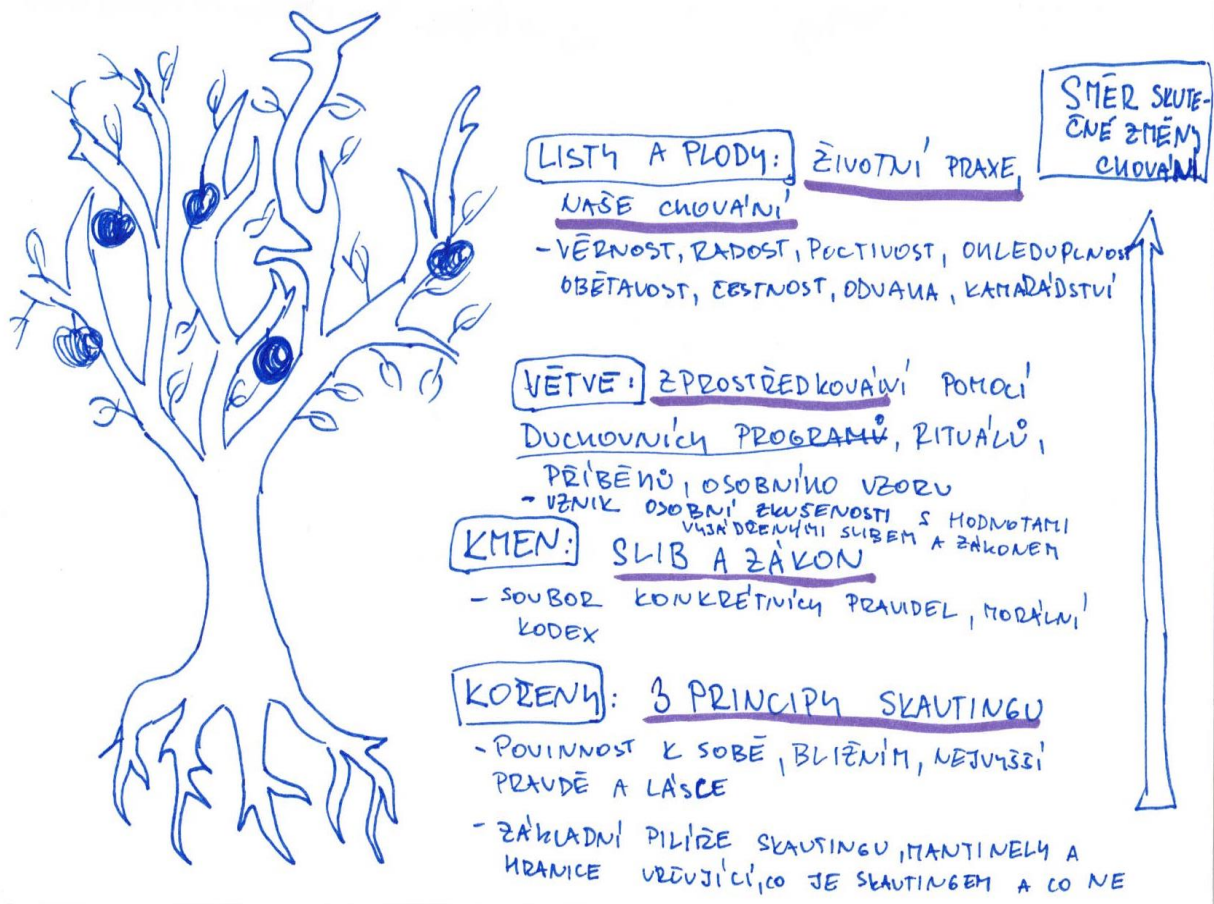 SMĚR SKUTE-
ČNÉ ZMĚNY
CHOVÁNÍ
LISTY A PLODY: ŽIVOTNÍ PRAXE,
NAŠE CHOVÁNÍ
- VĚRNOST, RADOST, POCTIVOST, OHLEDUPLNOST
OBĚTAVOST, ČESTNOST, ODVAHA, KAMARÁDSTVÍ
VĚTVE: ZPROSTŘEDKOVÁNÍ POMOCÍ
DUCHOVNÍCH PROGRAMŮ, RITUÁLŮ,
PŘÍBĚHŮ, OSOBNÍHO VZORU
- VZNIK OSOBNÍ ZKUŠENOSTI S HODNOTAMI
VYJÁDŘENÝMI SLIBEM A ZÁKONEM
KMEN: SLIB A ZÁKON
- SOUBOR KONKRÉTNÍCH PRAVIDEL, MORÁLNÍ
KODEX
KOŘENY: 3 PRINCIPY SKAUTINGU
- POVINNOST K SOBĚ, BLIŽNÍM, NEJVYŠŠÍ
PRAVDĚ A LÁSCE
- ZÁKLADNÍ PILÍŘE SKAUTINGU, MANTINELY A
HRANICE URČUJÍCÍ, CO JE SKAUTINGEM A CO NE